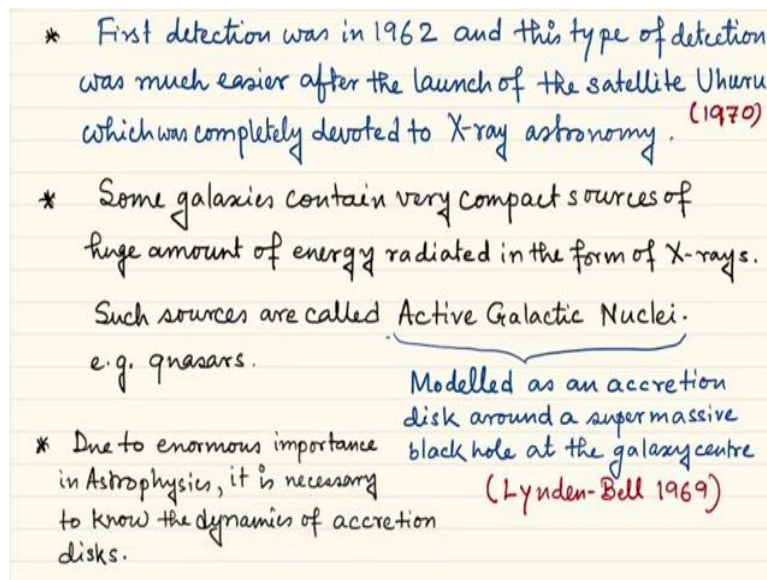 * First detection was in 1962 and this type of detection
was much easier after the launch of the satellite Uhuru
(1970)
which was completely devoted to X-ray astronomy.
* Some galaxies contain very compact sources of
huge amount of energy radiated in the form of X-rays.
Such sources are called Active Galactic Nuclei.
e.g. quasars.
Modelled as an accretion
disk around a supermassive
black hole at the galaxy centre
(Lynden-Bell 1969)
* Due to enormous importance
in Astrophysics, it is necessary
to know the dynamics of accretion
disks.